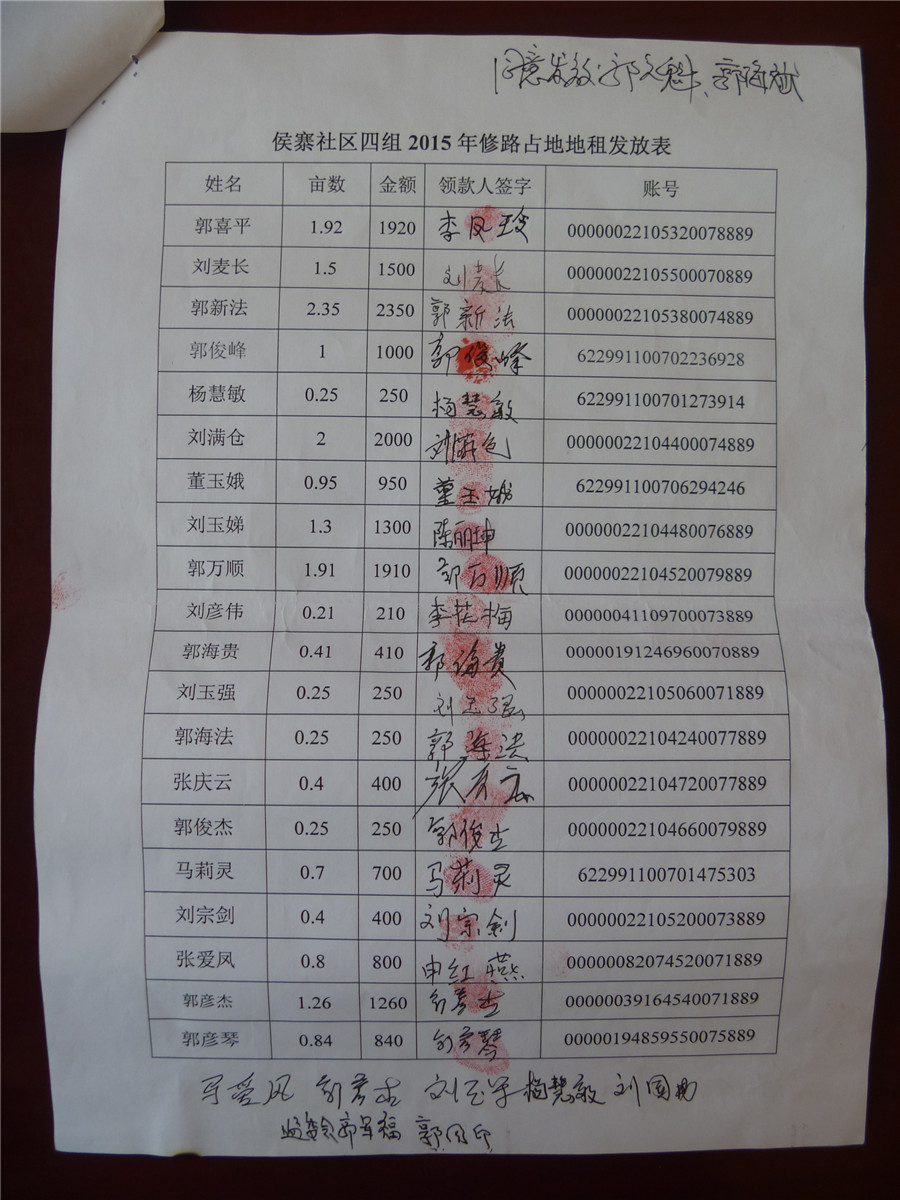 同意发放 郭文魁、郭海斌
侯寨社区四组 2015 年修路占地地租发放表
姓名 亩数 金额 领款人签字 账号
郭喜平 1.92 1920 李凤玲 00000022105320078889
刘麦长 1.5 1500 刘麦长 00000022105500070889
郭新法 2.35 2350 郭新法 00000022105380074889
郭俊峰 1 1000 郭俊峰 622991100702236928
杨慧敏 0.25 250 杨慧敏 622991100701273914
刘满仓 2 2000 刘满仓 00000022104400074889
董玉娥 0.95 950 董玉娥 622991100706294246
刘玉娣 1.3 1300 陈丽坤 00000022104480076889
郭万顺 1.91 1910 郭万顺 00000022104520079889
刘彦伟 0.21 210 李花梅 00000041109700073889
郭海贵 0.41 410 郭海贵 00000191246960070889
刘玉强 0.25 250 刘玉强 00000022105060071889
郭海法 0.25 250 郭海法 00000022104240077889
张庆云 0.4 400 张庆云 00000022104720077889
郭俊杰 0.25 250 郭俊杰 00000022104660079889
马莉灵 0.7 700 马莉灵 622991100701475303
刘宗剑 0.4 400 刘宗剑 00000022105200073889
张爱凤 0.8 800 申红燕 00000082074520071889
郭彦杰 1.26 1260 郭彦杰 00000039164540071889
郭彦琴 0.84 840 郭彦琴 00000194859550075889
马爱凤 郭彦杰 杨慧敏